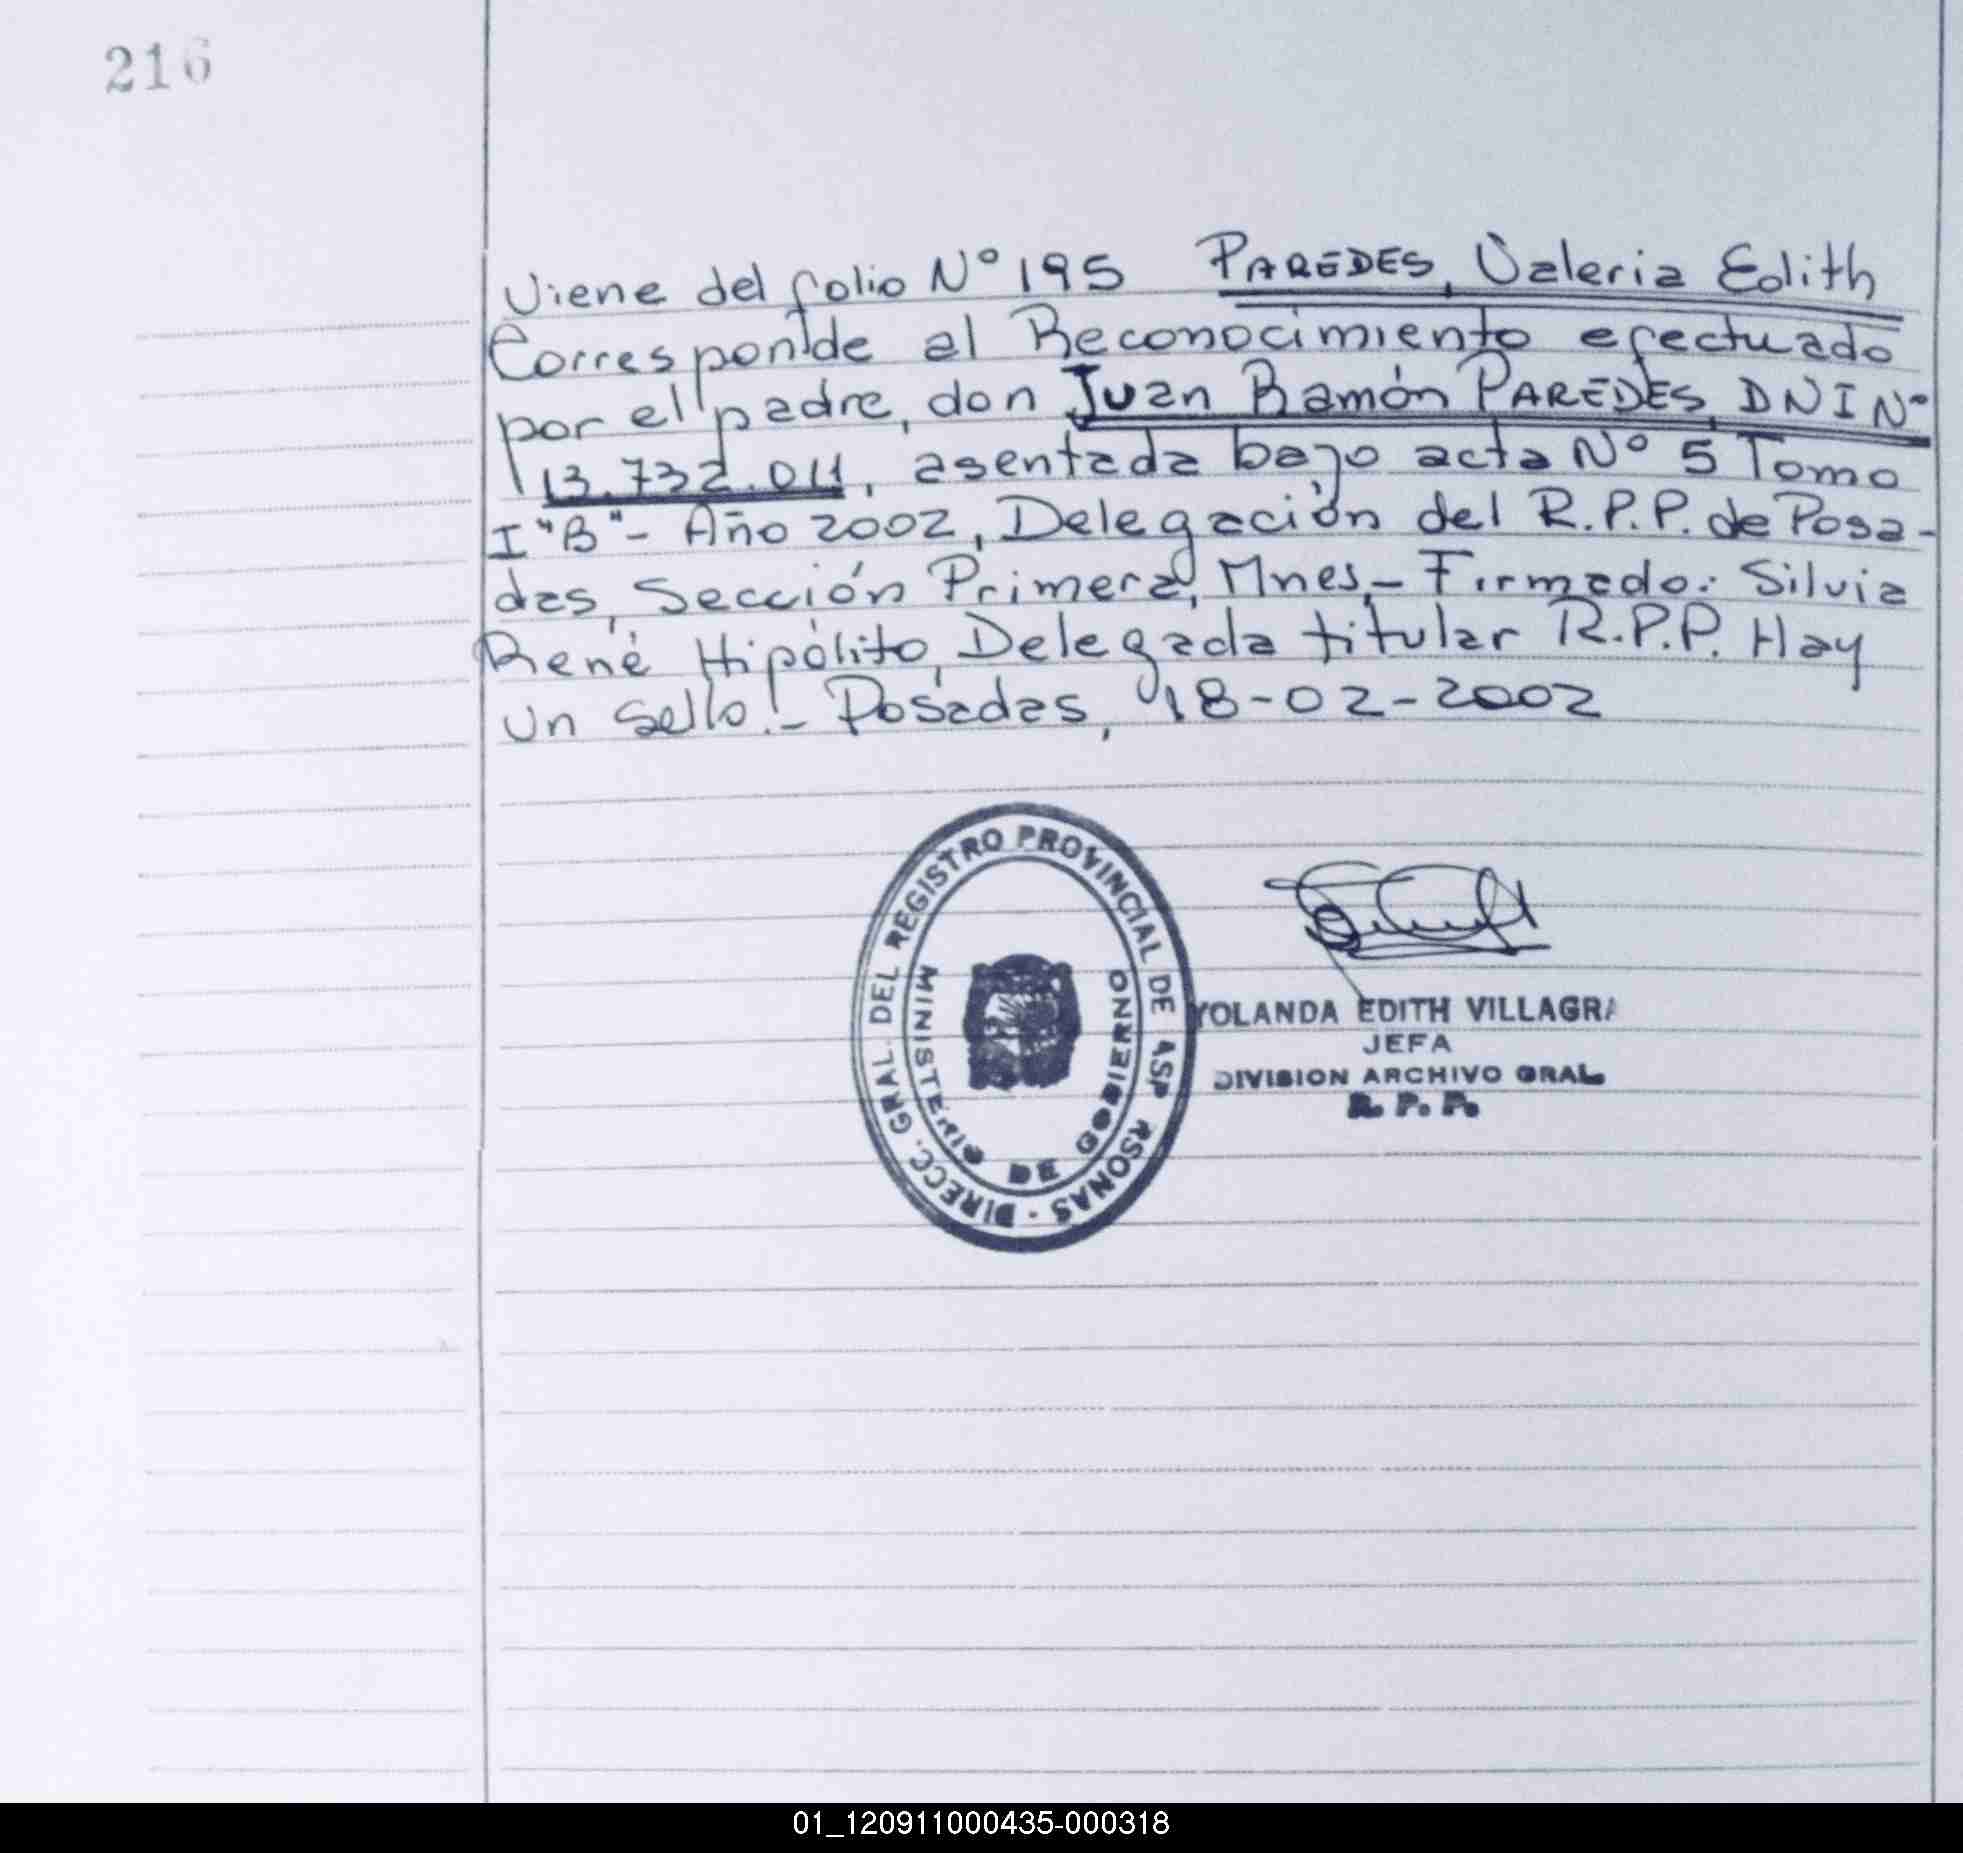 216
Viene del folio N° 195 PAREDES, Valeria Edith
Corresponde al Reconocimiento efectuado
por el padre, don Juan Ramón PAREDES, DNI N°
13.732.011, asentada bajo acta N° 5 Tomo
I "B" - Año 2002, Delegación del R.P.P. de Posa-
das, Sección Primera, Mnes.- Firmado: Silvia
René Hipólito, Delegada titular R.P.P. Hay
un sello.- Posadas, 18-02-2002
DIRECC. GRAL. DEL REGISTRO PROVINCIAL DE
RSONAS
MINISTERIO DE GOBIERNO
YOLANDA EDITH VILLAGRA
JEFA
DIVISION ARCHIVO GRAL.
R. P. P.
01_120911000435-000318